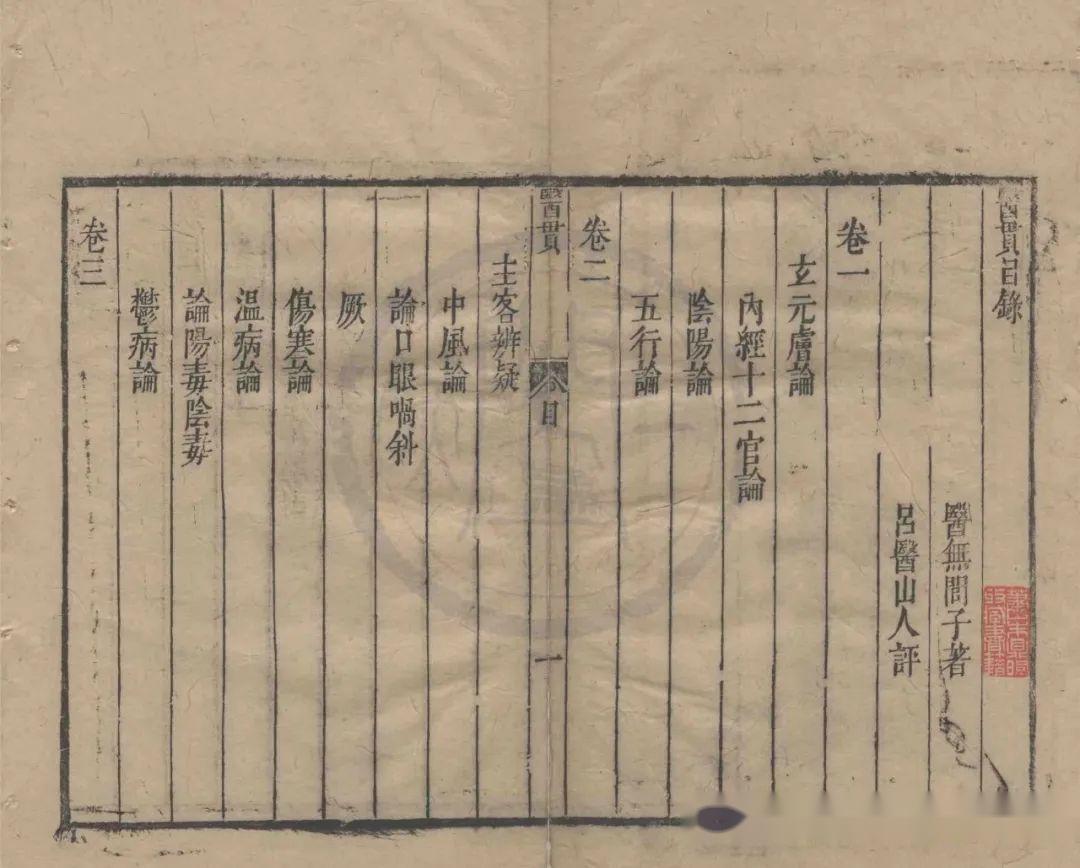 醫貫目錄
醫無閭子著
呂醫山人評
卷一
玄元膚論
內經十二官論
陰陽論
五行論
卷二
醫貫
目
一
主客辨疑
中風論
論口眼喎斜
厥
傷寒論
温病論
論陽毒陰毒
鬱病論
卷三